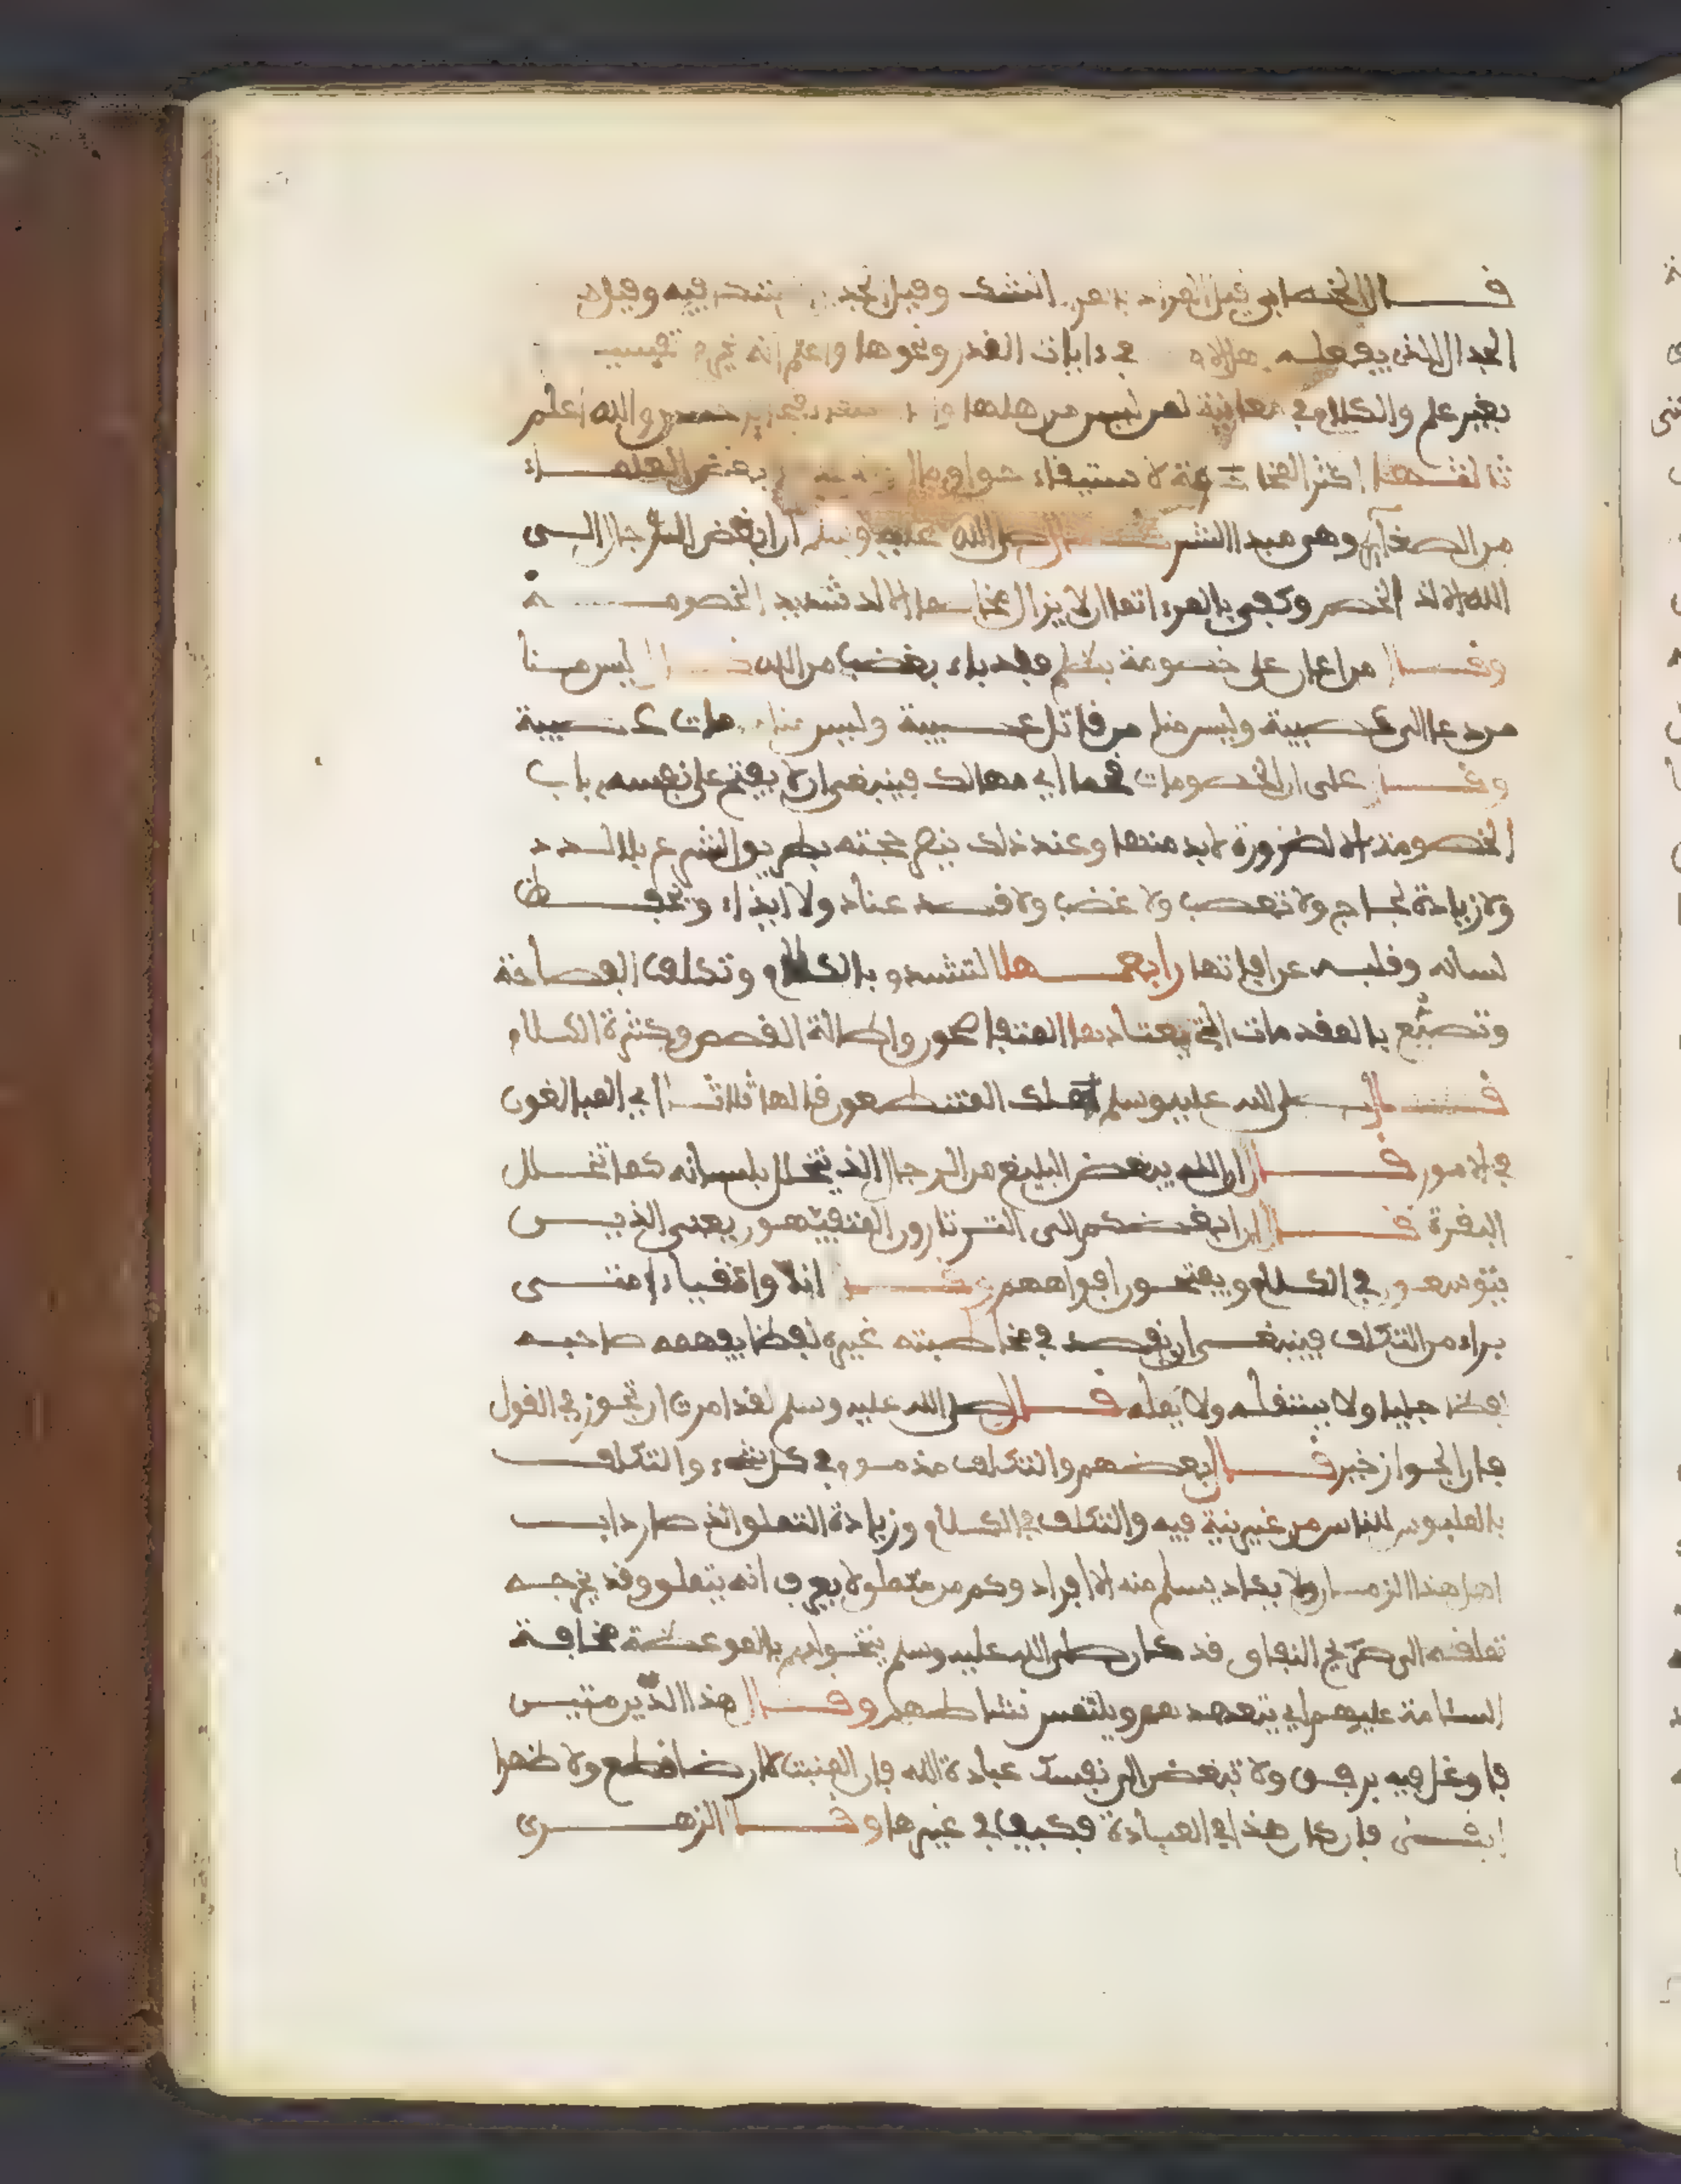 فال الخطابي فيل المراد بالمراء الشك وفيل الجدال المشكك فيه وفيل هو
الجدال الذي يفعله هلاء في ءايات الفدر ونحوها واعلم انه تفسير
بغير علم والكلام في معانيه لمن ليس من هلها والله اعلم
ثالثها اكثر المخاصمة لاستيفاء حق او مال بعض العلماء
من الصغاير وهو مبدا الشر فال صلى الله عليه وسلم ان ابغض الرجال الى
الله الالد الخصم وكفى بالمرء اثما ان لا يزال مخاصما الالد شديد الخصومة
وفال من اعان على خصومة بظلم ففد باء بغضب من الله فال ليس منا
من دعا الى عصبية وليس منا من فاتل عصبية وليس منا من مات عصبية
وفال على ان للخصومات فحما اي مهالك فينبغي ان لا يفتح على نفسه باب
الخصومة الا لضرورة لا بد منها وعند ذلك ينصح حجته بطريق الشرع بلا لدد
ولا زيادة لجاج ولا تعصب ولا غضب ولا فصد عناد ولا ايذاء ويحفظ
لسانه وفلبه عن افاتها رابعها التشدق بالكلام وتكلف الفصاحة
وتصنع بالمفدمات التي يعتادها المتفاصحون واطالة الفصص وكثرة الكلام
فال صلى الله عليه وسلم هلك المتنطعون فالها ثلاثا اي المبالغون
في الامور فال ان الله يبغض البليغ من الرجال الذي يتخلل بلسانه كما تتخلل
البفرة فال ان ابغضكم الى الثرثارون المتفيهفون يعني الذين
يتوسعون في الكلام ويفتحون افواههم وفال انا واتفياء امتي
براء من التكلف فينبغي ان يفصد في مخاطبته غيره لفظا يفهمه صاحبه
فهما جليا ولا يستثفله ولا يمله فال صلى الله عليه وسلم لفد امرت ان اتجوز في الفول
فان الجواز خير فال بعضهم والتكلف مذموم في كل شيء والتكلف
بالملبوس للناس من غير نية فيه والتكلف في الكلام وزيادة التملق الذي صار داب
اهل هذا الزمان ولا يكاد يسلم منه الا افراد وكم من متملق لا يعرف انه يتملق وفد يخرجه
تملفه الى صريح النفاق فد كان صلى الله عليه وسلم يتخولهم بالموعظة مخافة
السئامة عليهم اي يتعهدهم ويلتمس نشاطهم وفال هذا الدين متين
فاوغل فيه برفق ولا تبغض الى نفسك عبادة الله فان المنبت لا ارضا فطع ولا ظهرا
ابفى فان كان هذا في العبادة فكيف في غيرها وفال الزهري